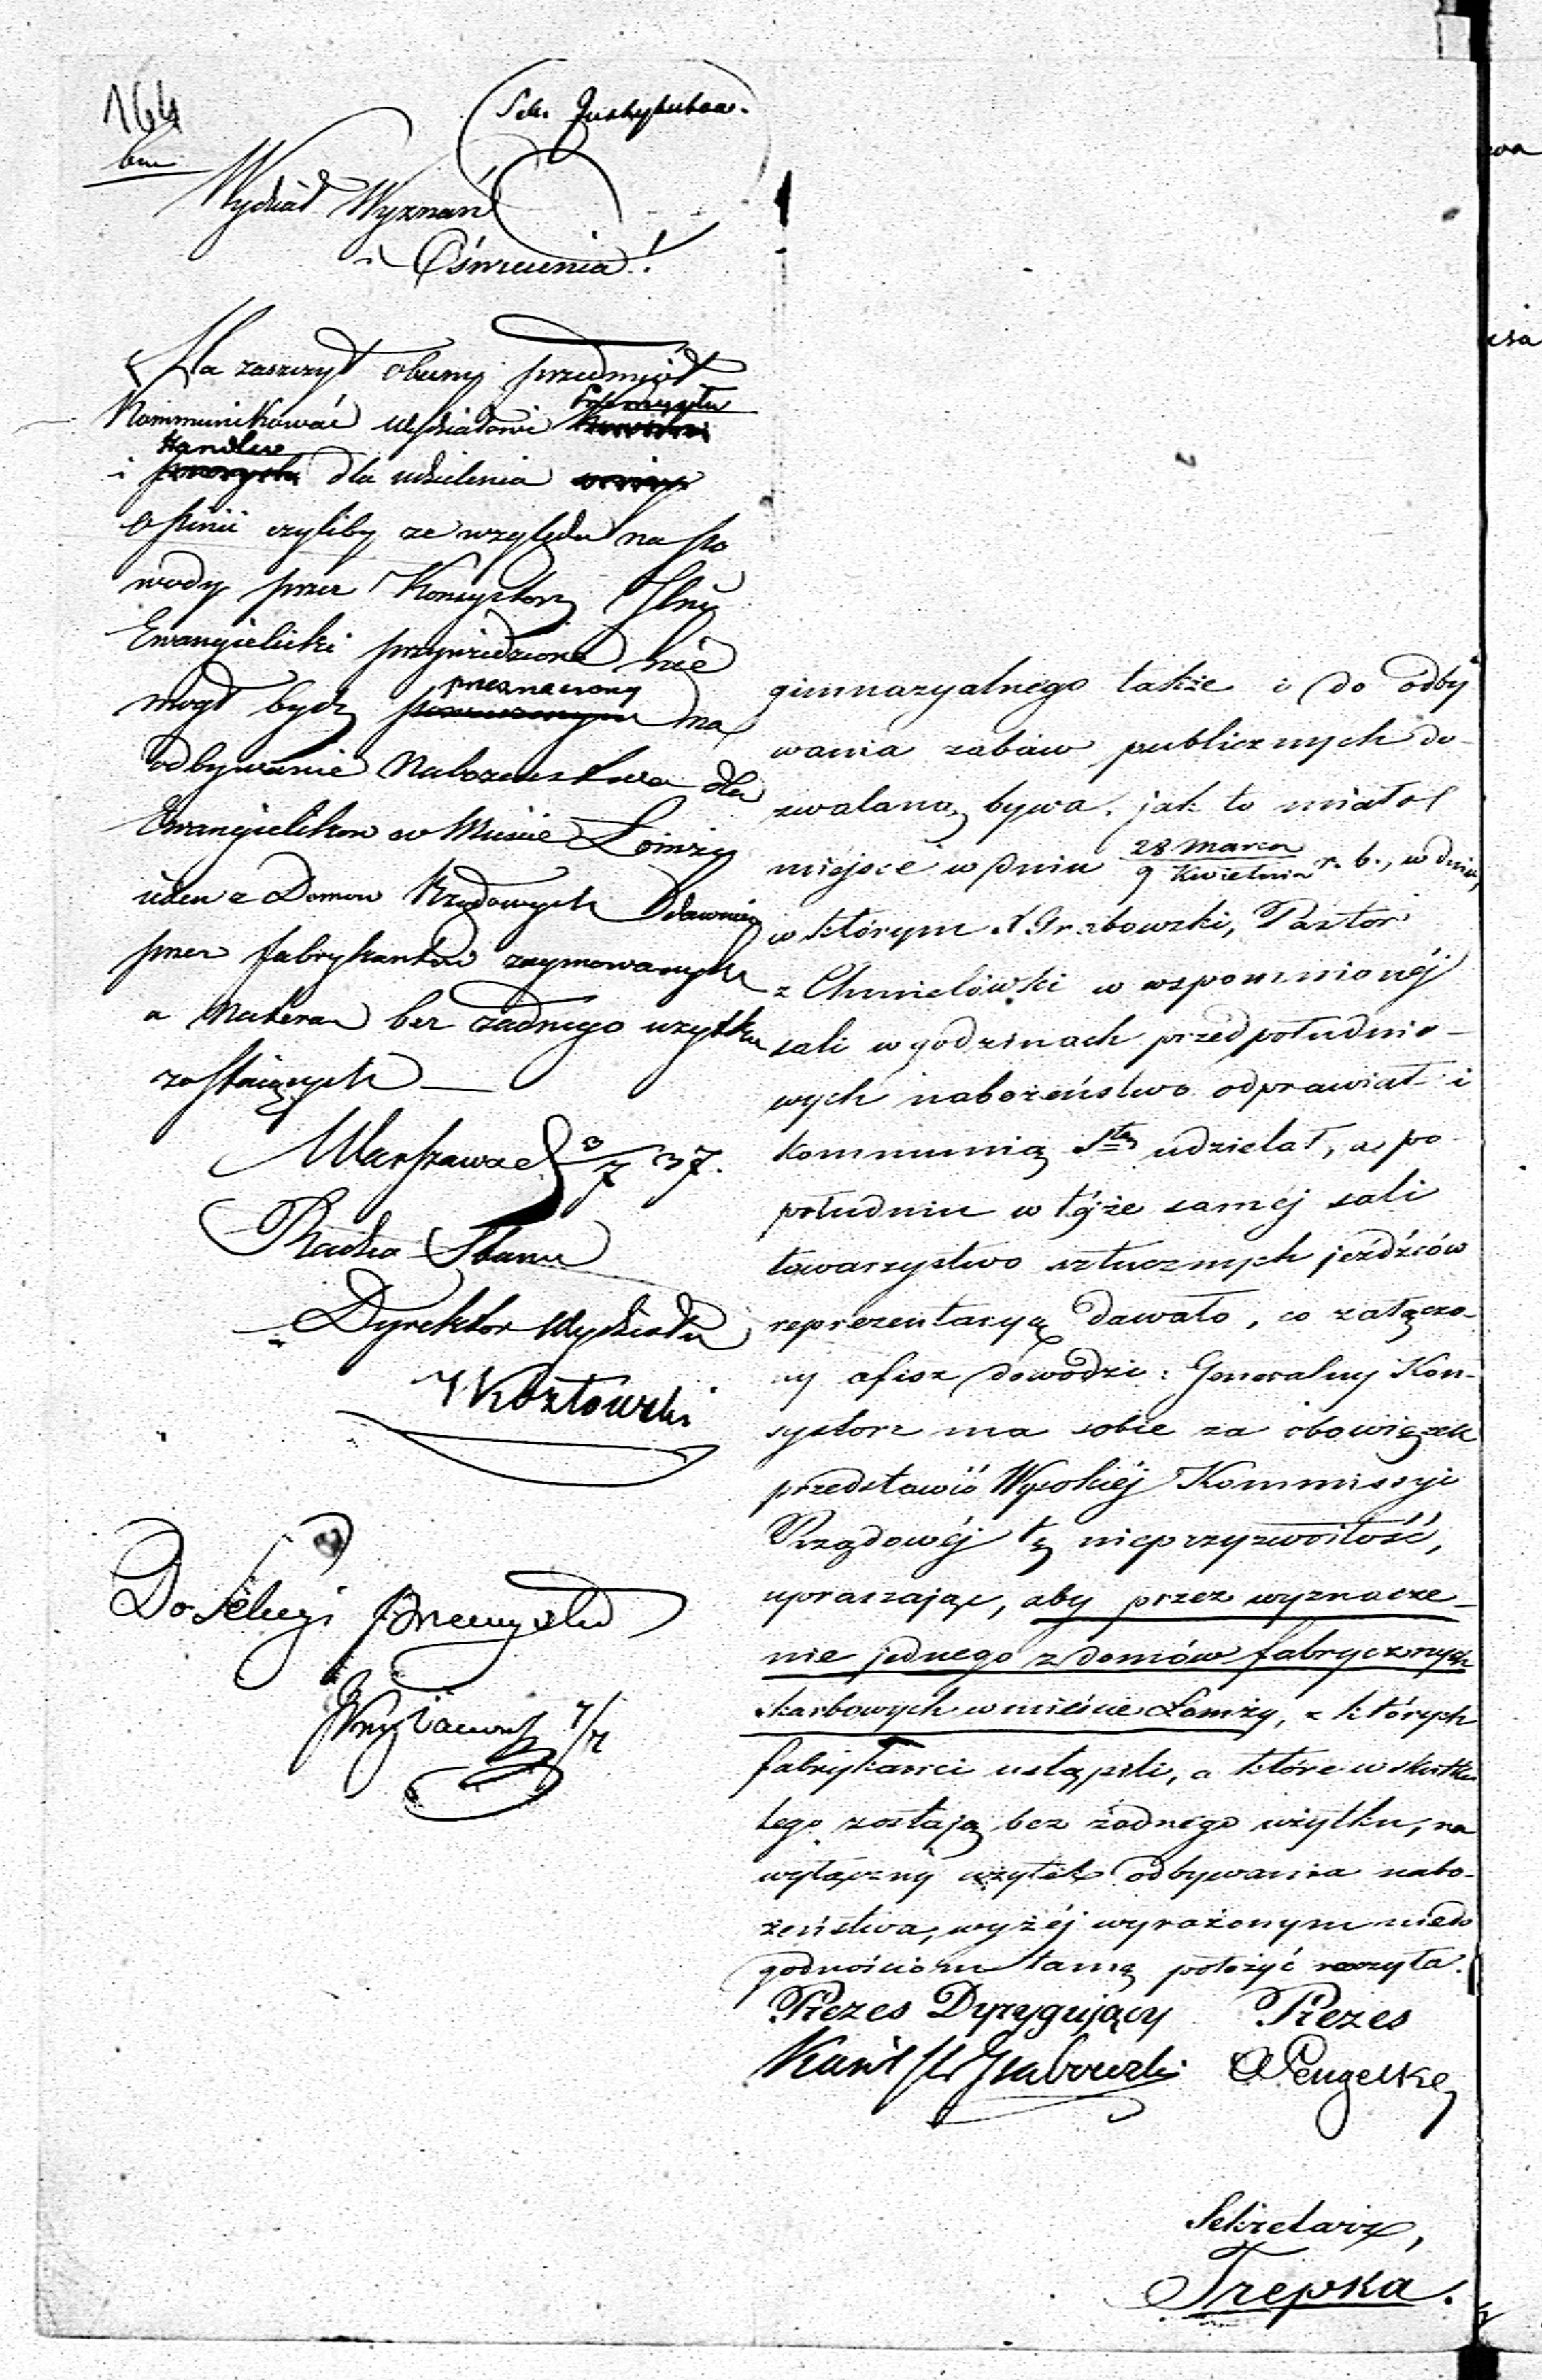 164
Wydział Wyznań
i Oświecenia.
Ma zaszczyt obecny przedmiót
Kommunikować Wydziałowi Przemysłu
i Handlu dla udzielenia
opinii czyliby ze względu na po
wody przez Konsystorz Jlny
Ewangielicki przywiedzione nie
mogł bydź przeznaczony na
odbywanie Nabozenstwa dla
Ewangielikow w Miescie Łomży
ieden z Domow Rządowych dawniey
przez fabrykantów zaymowanych
a nateraz bez zadnego uzytku
zostaiących —
Warszawa d 3/7 37.
Radca Stanu
Dyrektor Wydziału
Kozłowski
Do Sekcyi Przemysłu
7/7
gimnazyalnego także i do odby
wania zabaw publicznych do-
zwalaną bywa, jak to miało
miejsce w dniu 28 Marca / 9 Kwietnia r. b., w dniu,
w którym X Grabowski, Pastor
z Chmielówki w wspomnionéj
sali w godzinach przedpołudnio-
wych nabożeństwo odprawiał i
kommunią Stą udzielał, a po
południu w téjże saméj sali
towarzystwo sztucznych jeźdźców
reprezentacyą dawało, co załączo-
ny afisz dowodzi: Generalny Kon-
systorz ma sobie za obowiązek
przedstawić Wysokiéj Kommissyi
Rządowéj tę nieprzyzwoitość,
upraszając, aby przez wyznacze-
nie jednego z domów fabrycznych
skarbowych w mieście Łomży, z których
fabrykanci ustąpili, a które w skutku
tego zostają bez żadnego użytku, na
wyłączny użytek odbywania nabo-
żeństwa, wyżéj wyrażonym niedo
godnościom tamę położyć raczyła.
Prezes Dyrygujący Prezes
Grabowski
Sekretarz,
Trepka.